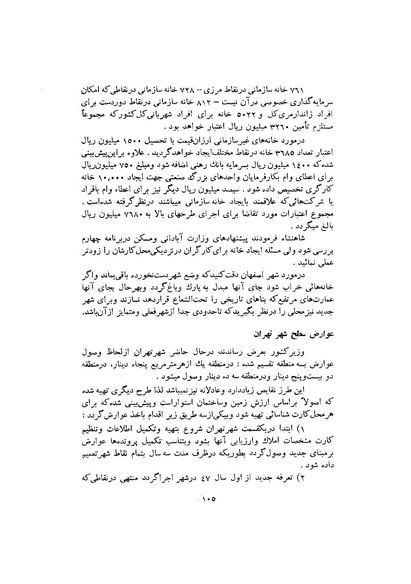 ۷۶۱ خانه سازمانی درنقاط مرزی – ۷۲۸ خانه سازمانی درنقاطی‌که امکان
سرمایه‌گذاری خصوصی درآن نیست – ۸۱۲ خانه سازمانی درنقاط دوردست برای
افراد ژاندارمری‌کل و ۵۰۲۲ خانه برای افراد شهربانی‌کل‌کشورکه مجموعاً
مستلزم تأمین ۳۲۶۰ میلیون ریال اعتبار خواهد بود .
درمورد خانه‌های غیرسازمانی ارزان‌قیمت با تحصیل ۱۵۰۰ میلیون ریال
اعتبار تعداد ۳۶۸۵ خانه در نقاط مختلف‌ایجاد خواهدگردید . علاوه براین‌پیش‌بینی
شده‌که ۱۴۰۰ میلیون ریال بسرمایه بانك رهنی اضافه شود ومبلغ ۷۵۰ میلیون‌ریال
برای اعطای وام بکارفرمایان واحدهای بزرگ صنعتی جهت ایجاد ۱۰,۰۰۰ خانه
کارگری تخصیص داده شود . سیصد میلیون ریال دیگر نیز برای اعطاء وام بافراد
یا شرکت‌هائی‌که علاقمند بایجاد خانه سازمانی میباشند درنظرگرفته شده‌است .
مجموع اعتبارات مورد تقاضا برای اجرای طرحهای بالا به ۷۶۸۰ میلیون ریال
بالغ میگردد .
شاهنشاه فرمودند پیشنهادهای وزارت آبادانی ومسکن دربرنامه چهارم
بررسی شود ولی مسئله ایجاد خانه برای‌کارگران درنزدیکی‌محل‌کارشان را زودتر
عملی نمائید .
درمورد شهر اصفهان دقت‌کنیدکه وضع شهردست‌نخورده باقی‌بماند واگر
خانه‌هائی خراب شود جای آنها مبدل به پارك وباغ‌گردد وبهرحال بجای آنها
عمارت‌های مرتفع‌که بناهای تاریخی را تحت‌الشعاع قراردهد نسازند وبرای شهر
جدید نیزمحلی را درنظر بگیریدکه تاحدودی جدا ازشهرفعلی ومتمایز ازآن‌باشد.
عوارض سطح شهر تهران
وزیرکشور بعرض رساندند درحال حاضر شهرتهران ازلحاظ وصول
عوارض بسه‌منطقه تقسیم شده : درمنطقه یك ازهرمترمربع پنجاه دینار، درمنطقه
دو بیست‌وپنج دینار ودرمنطقه سه ده دینار وصول میشود .
این طرز نقایص زیاددارد وعادلانه نیزنمیباشد لذا طرح دیگری تهیه شده
که اصولاً براساس ارزش زمین وساختمان استواراست وپیش‌بینی شده‌که برای
هرمحل‌کارت شناسائی تهیه شود وبیکی‌ازسه طریق زیر اقدام باخذ عوارض‌گردد :
۱) ابتدا دریکقسمت شهرتهران شروع بتهیه وتکمیل اطلاعات وتنظیم
کارت مشخصات املاك وارزیابی آنها بشود وبتناسب تکمیل پرونده‌ها عوارض
برمبنای جدید وصول‌گردد بطوریکه درظرف مدت سه سال بتمام نقاط شهرتعمیم
داده شود .
۲) تعرفه جدید از اول سال ۴۷ درشهر اجراگردد منتهی درنقاطی‌که
۱۰۵